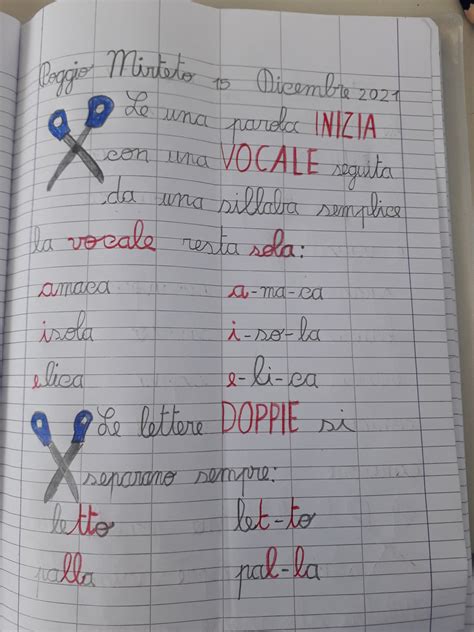 Poggio Mirteto 15 Dicembre 2021
Se una parola INIZIA
con una VOCALE seguita
da una sillaba semplice
la vocale resta sola:
amaca a-ma-ca
isola i-so-la
elica e-li-ca
Le lettere DOPPIE si
separano sempre:
letto let-to
palla pal-la